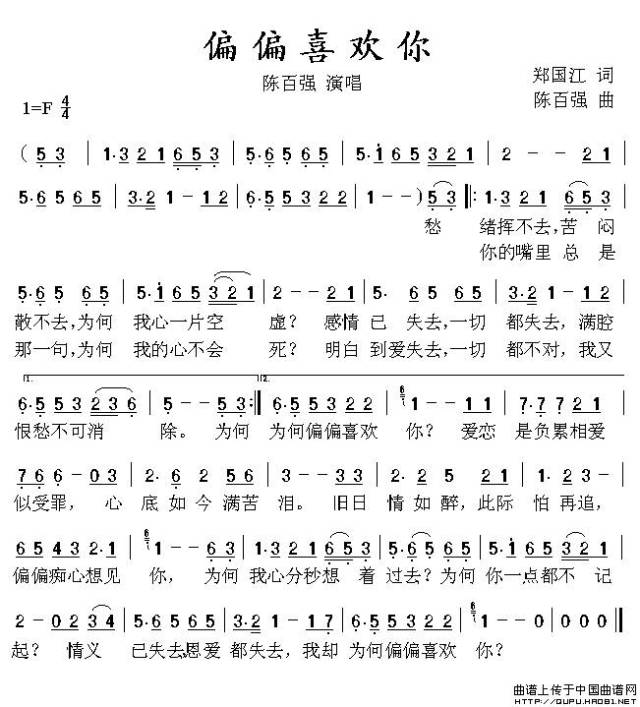 偏偏喜欢你
陈百强 演唱
郑国江 词
陈百强 曲
1=F 4/4
( 5 3 | 1·3 2 1 6 5 3 | 5·6 5 6 5 | 5·1 6 5 3 2 1 | 2 - - 2 1 |
5·6 5 6 5 | 3·2 1 - 1 2 | 6·5 5 3 2 2 | 1 - - ) 5 3 |: 1·3 2 1 6 5 3 |
愁 绪挥不去,苦闷
你的嘴里总是
5·6 5 6 5 | 1·5 1 6 5 3 2 1 | 2 - - 2 1 | 5· 6 5 6 5 | 3·2 1 - 1 2 |
散不去,为何 我心一片空 虚? 感情已 失去,一切 都失去,满腔
那一句,为何 我的心不会 死? 明白到爱失去,一切 都不对,我又
1. 2.
6·5 5 3 2 3 6 | 5 - - 5 :| 6·5 5 3 2 2 | 1 - - 1 1 | 7·7 7 2 1 |
恨愁不可消 除。 为何 为何偏偏喜欢 你? 爱恋 是负累相爱
7 6 6 - 0 3 | 2· 6 2 5 6 | 3 - - 3 5 | 2·1 2 0 2 1 |
似受罪, 心 底如今满苦 泪。 旧日 情如醉,此际 怕再追,
6 5 4 3 2·1 | 1 - - 6 3 | 1·3 2 1 6 5 3 | 5·6 5 6 5 | 5·1 6 5 3 2 1 |
偏偏痴心想见 你, 为何 我心分秒想 着过去?为何 你一点都不 记
2 - 0 2 3 4 | 5·6 5 6 5 | 3·2 1 - 1 7 | 6·5 5 3 2 2 | 1 - - 0 | 0 0 0 0 ||
起? 情义 已失去恩爱 都失去,我却 为何偏偏喜欢 你?
曲谱上传于中国曲谱网
HTTP://QUPU.HAO81.NET